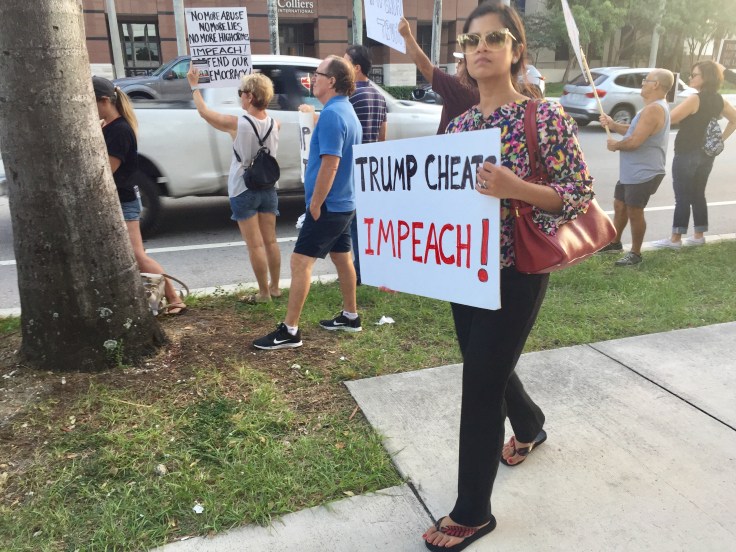 NO MORE ABUSE
NO MORE LIES
NO MORE HIGH CRIMES
IMPEACH!
DEFEND OUR
DEMOCRACY
Colliers
INTERNATIONAL
TRUMP CHEATS
IMPEACH!